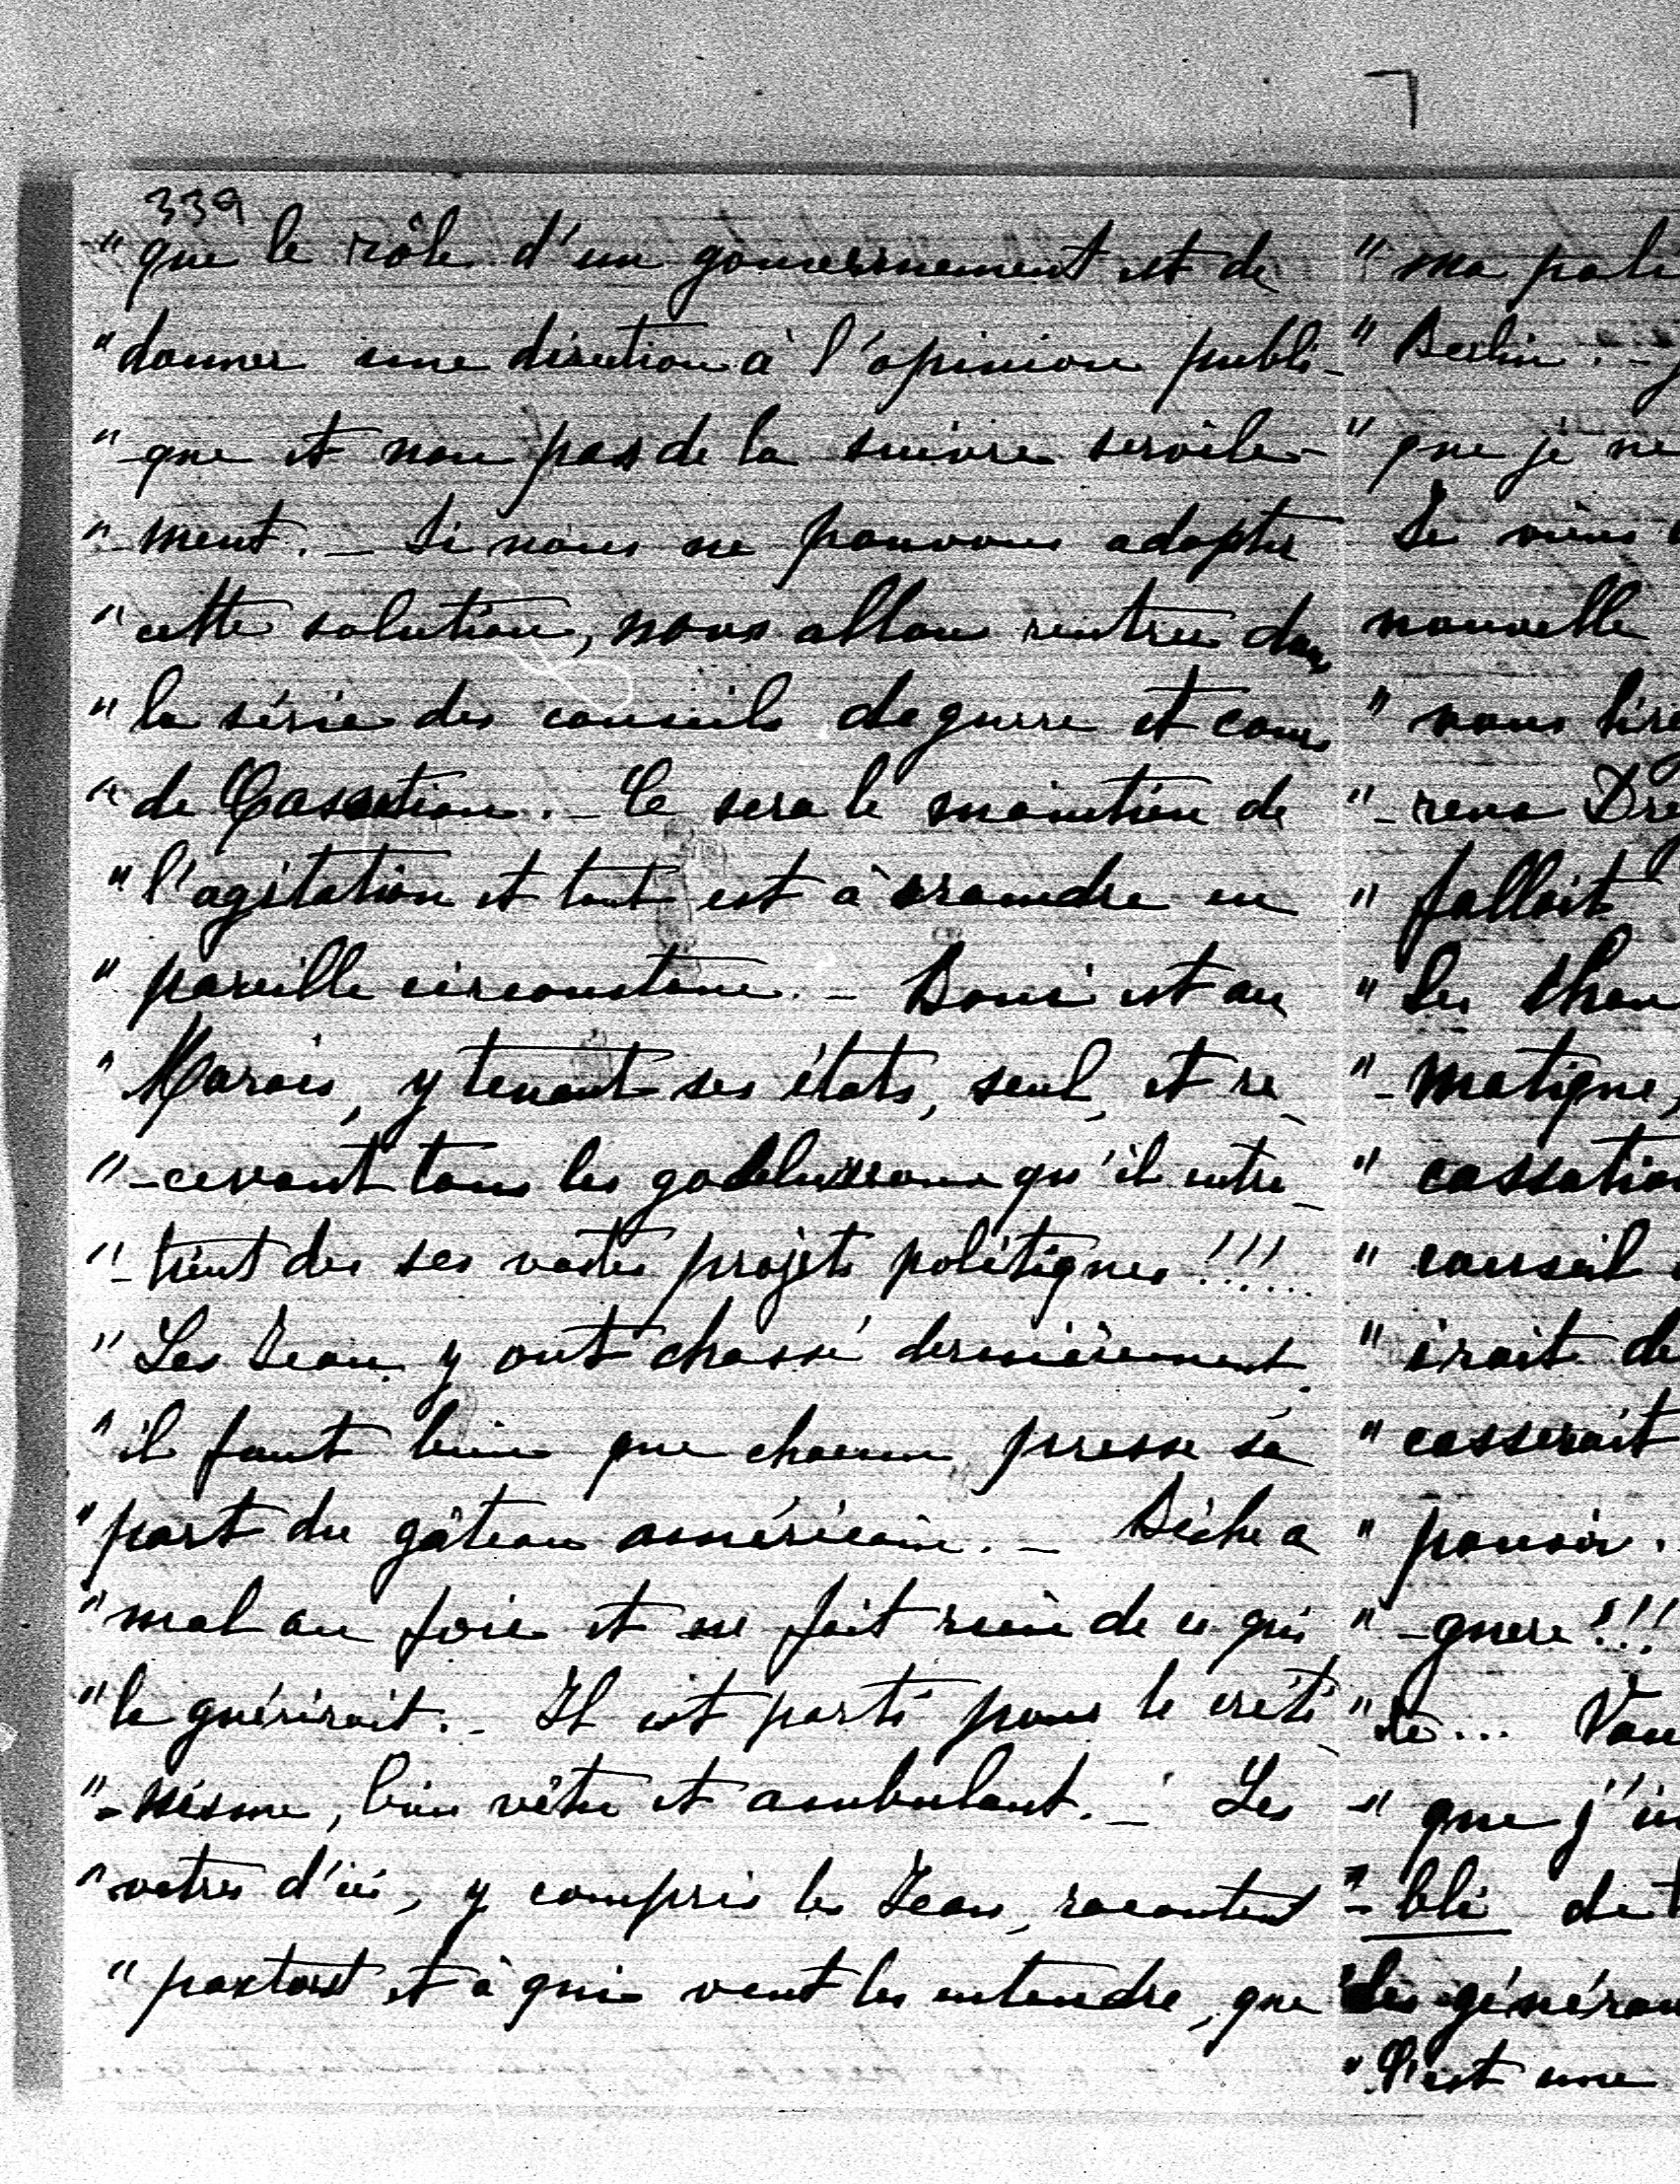 339
" que le rôle d'un gouvernement est de
" donner une direction à l'opinion publi-
" -que et non pas de la suivre servile-
" -ment. - Si nous ne pouvons adopter
" cette solution, nous allons rentrer dans
" la série des conseils de guerre et cours
" de Cassation. - Ce sera le maintien de
" l'agitation et tout est à craindre en
" pareille circonstance. - Boni est au
" Marais, y tenant ses états, seul, et re-
" -cevant tous les godelureaux qu'il entre-
" -tient de ses vastes projets politiques !!!...
" Les Jean y ont chassé dernièrement,
" il faut bien que chacun presse sa
" part du gâteau américain. - a
" mal au foie et ne fait rien de ce qui
" le guérirait. - Il est parti pour le créti-
" -nisme, bien vêtu et ambulant. - Les
" votres d'ici, y compris les Jean, racontent
" partout et à qui veut les entendre, que
" ma poli
" Berlin. -
" que je ne
Je viens
nouvelle
" nous
" -rens
" fallait
" les
" -matique,
" cassation
" conseil
" irait de
" casserait
" pouvoir.
" -guere !!!
" ...
" que j'
" -blé de
" les généraux
" C'est une